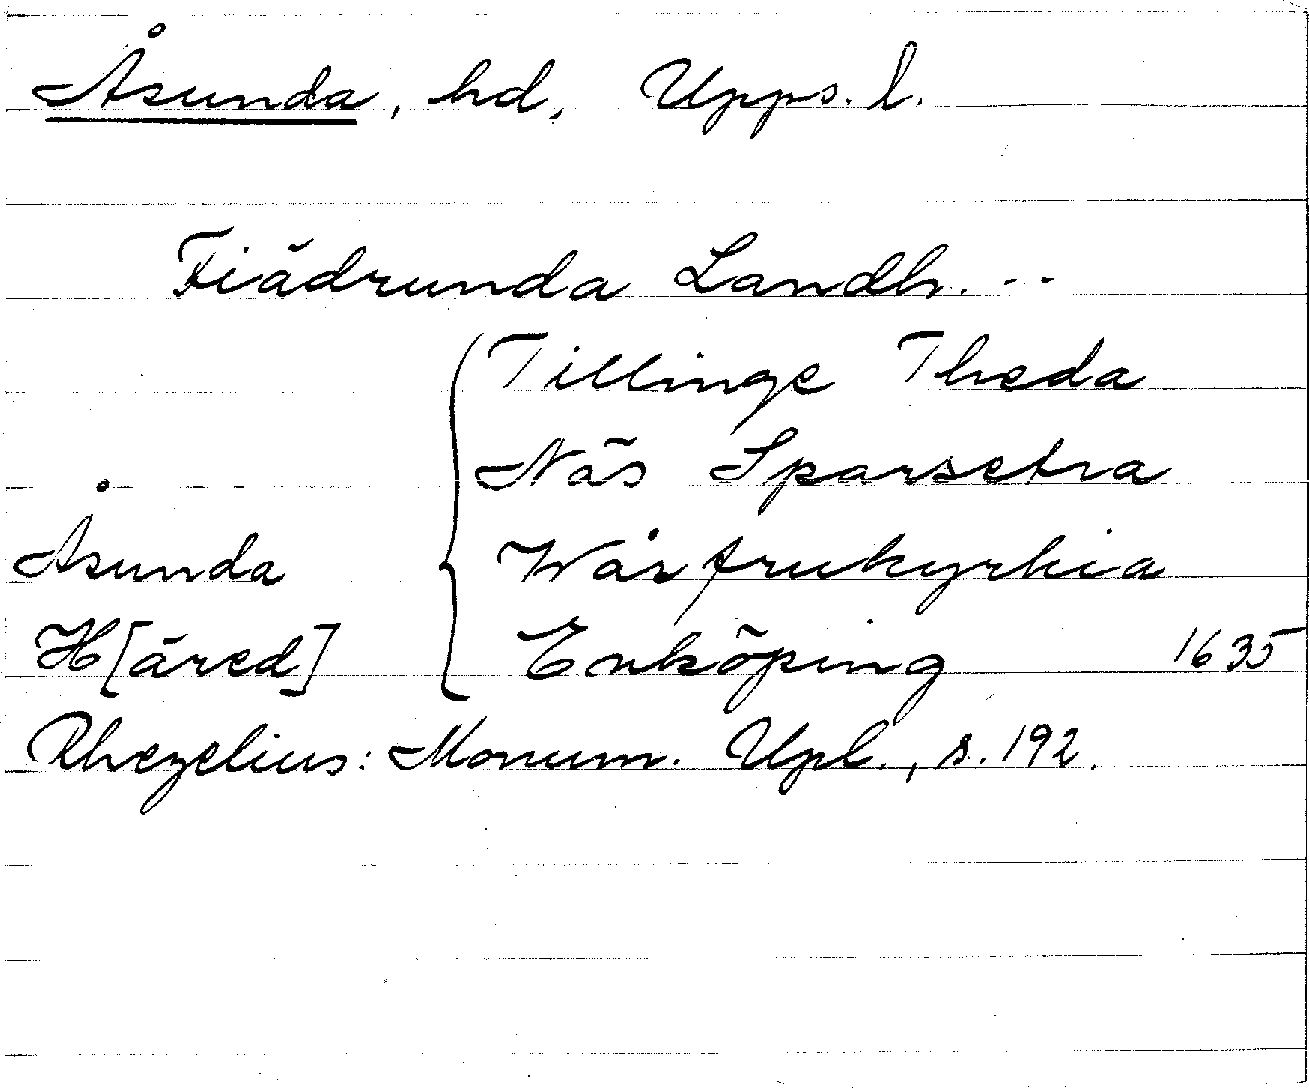 Åsunda, hd, Upps. l.
Fiädrunda Landh. --
Tillinge Theda
Näs Sparsetra
Åsunda Wårfrukyrkia
H[äred] Enköping 1635
Rhezelius: Monum. Upl., s. 192.